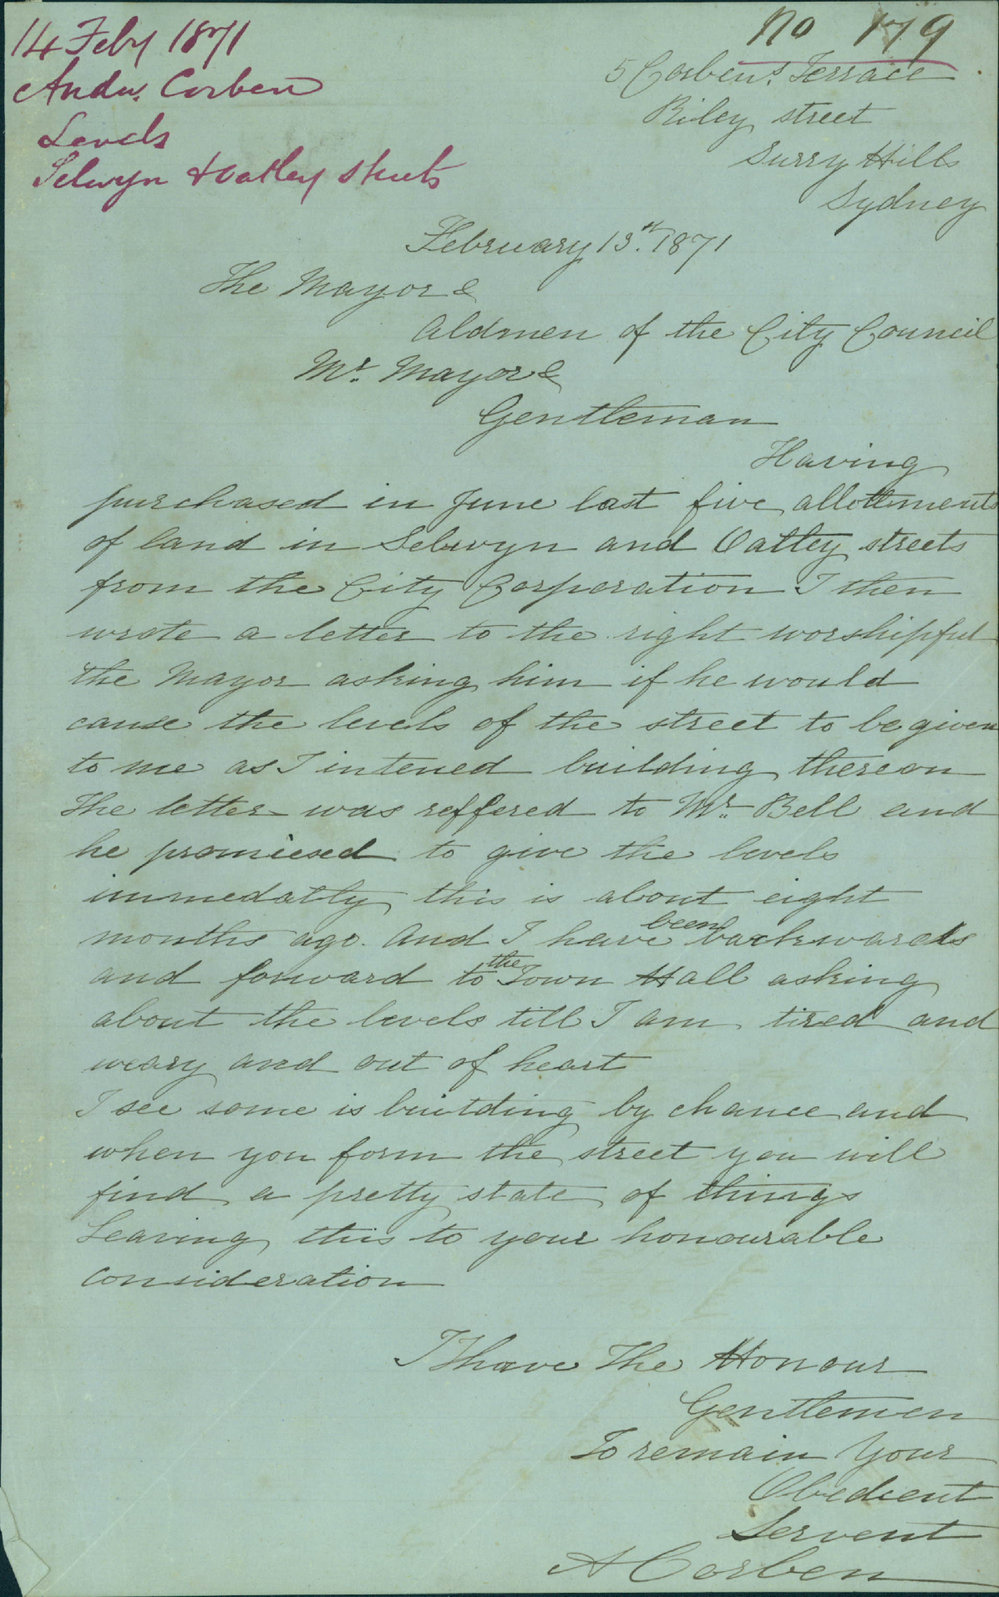 14 Feby 1871
Andw. Corben
Levels
Selwyn & Oatley Streets
No 179
5 Corbens Terrace
Riley street
Surry Hills
Sydney
February 13th 1871
The Mayor &
Aldmen of the City Council
Mr. Mayor &
Gentleman
Having
purchased in June last five allottments
of land in Selwyn and Oatley streets
from the City Corporation I then
wrote a letter to the right worshipful
the Mayor asking him if he would
cause the levels of the street to be given
to me as I intened building thereon
The letter was reffered to Mr. Bell and
he promiesed to give the levels
immedatly this is about eight
months ago. And I have been backwards
and forward to the Town Hall asking
about the levels till I am tired and
weary and out of heart
I see some is building by chance and
when you form the street you will
find a pretty state of things
Leaving this to your honourable
consideration
I have The Honour
Gentlemen
To remain Your
Obedient
Servent
A Corben